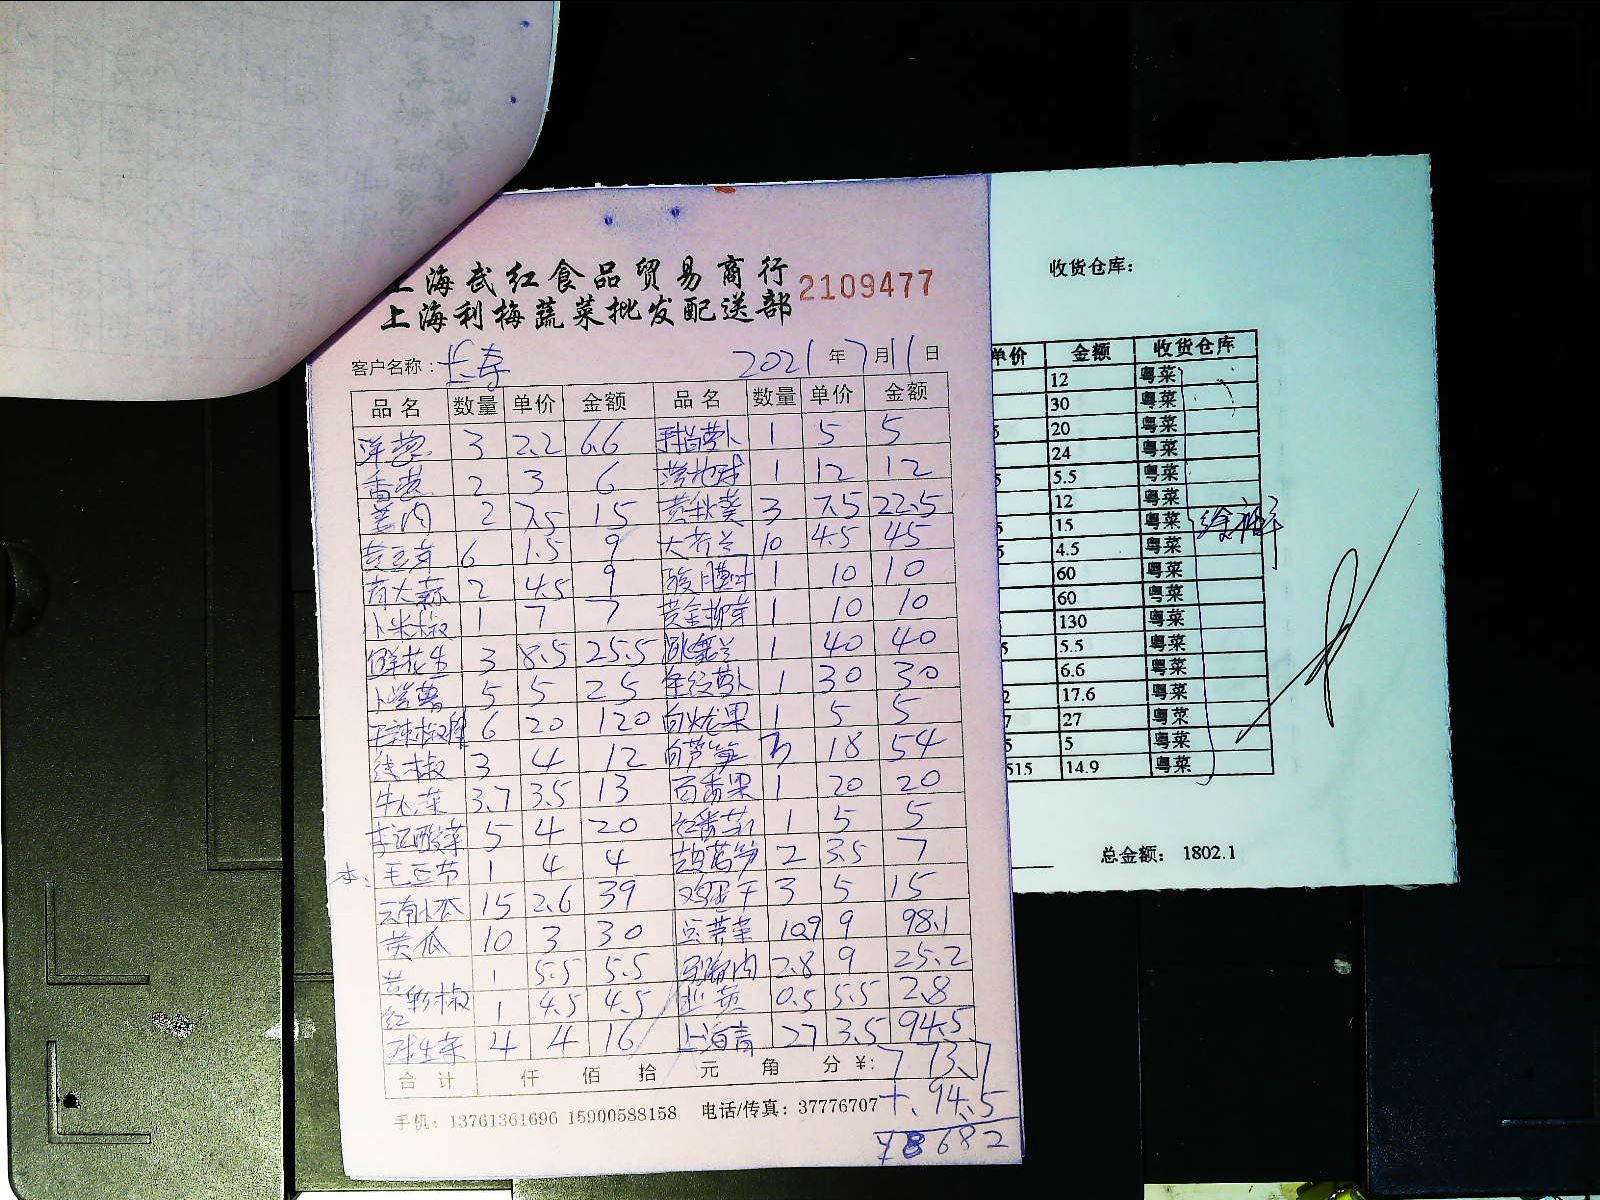 上海武红食品贸易商行
上海利梅蔬菜批发配送部
2109477
客户名称：长寿 2021年7月11日
品名 数量 单价 金额 品名 数量 单价 金额
洋葱 3 2.2 6.6 萝卜 1 5 5
香菜 2 3 6 1 12 12
姜肉 2 7.5 15 黄秋葵 3 7.5 22.5
黄豆芽 6 1.5 9 大荷兰 10 4.5 45
青大蒜 2 4.5 9 酸膜叶 1 10 10
小米椒 1 7 7 黄金柳芽 1 10 10
鲜花生 3 8.5 25.5 跳舞兰 1 40 40
小紫薯 5 5 25 萝卜 1 30 30
干辣椒 6 20 120 白火龙果 1 5 5
线椒 3 4 12 白芦笋 3 18 54
牛心菜 3.7 3.5 13 百香果 1 20 20
李记酸菜 5 4 20 红番茄 1 5 5
本: 毛豆节 1 4 4 莴笋 2 3.5 7
云南小瓜 15 2.6 39 3 5 15
黄瓜 10 3 30 豆苗菜 10.9 9 98.1
黄 1 5.5 5.5 肉 2.8 9 25.2
红彩椒 1 4.5 4.5 韭黄 0.5 5.5 2.8
球生菜 4 4 16 上海青 27 3.5 94.5
合计 仟 佰 拾 元 角 分 ¥: 773.7
+.94.5
手机：13761361696 15900588158 电话/传真：37776707
¥8682
收货仓库：
单价 金额 收货仓库
12 粤菜
30 粤菜
5 20 粤菜
24 粤菜
5 5.5 粤菜
12 粤菜
5 15 粤菜
5 4.5 粤菜
60 粤菜
60 粤菜
130 粤菜
5 5.5 粤菜
6.6 粤菜
2 17.6 粤菜
7 27 粤菜
5 5 粤菜
515 14.9 粤菜
总金额： 1802.1